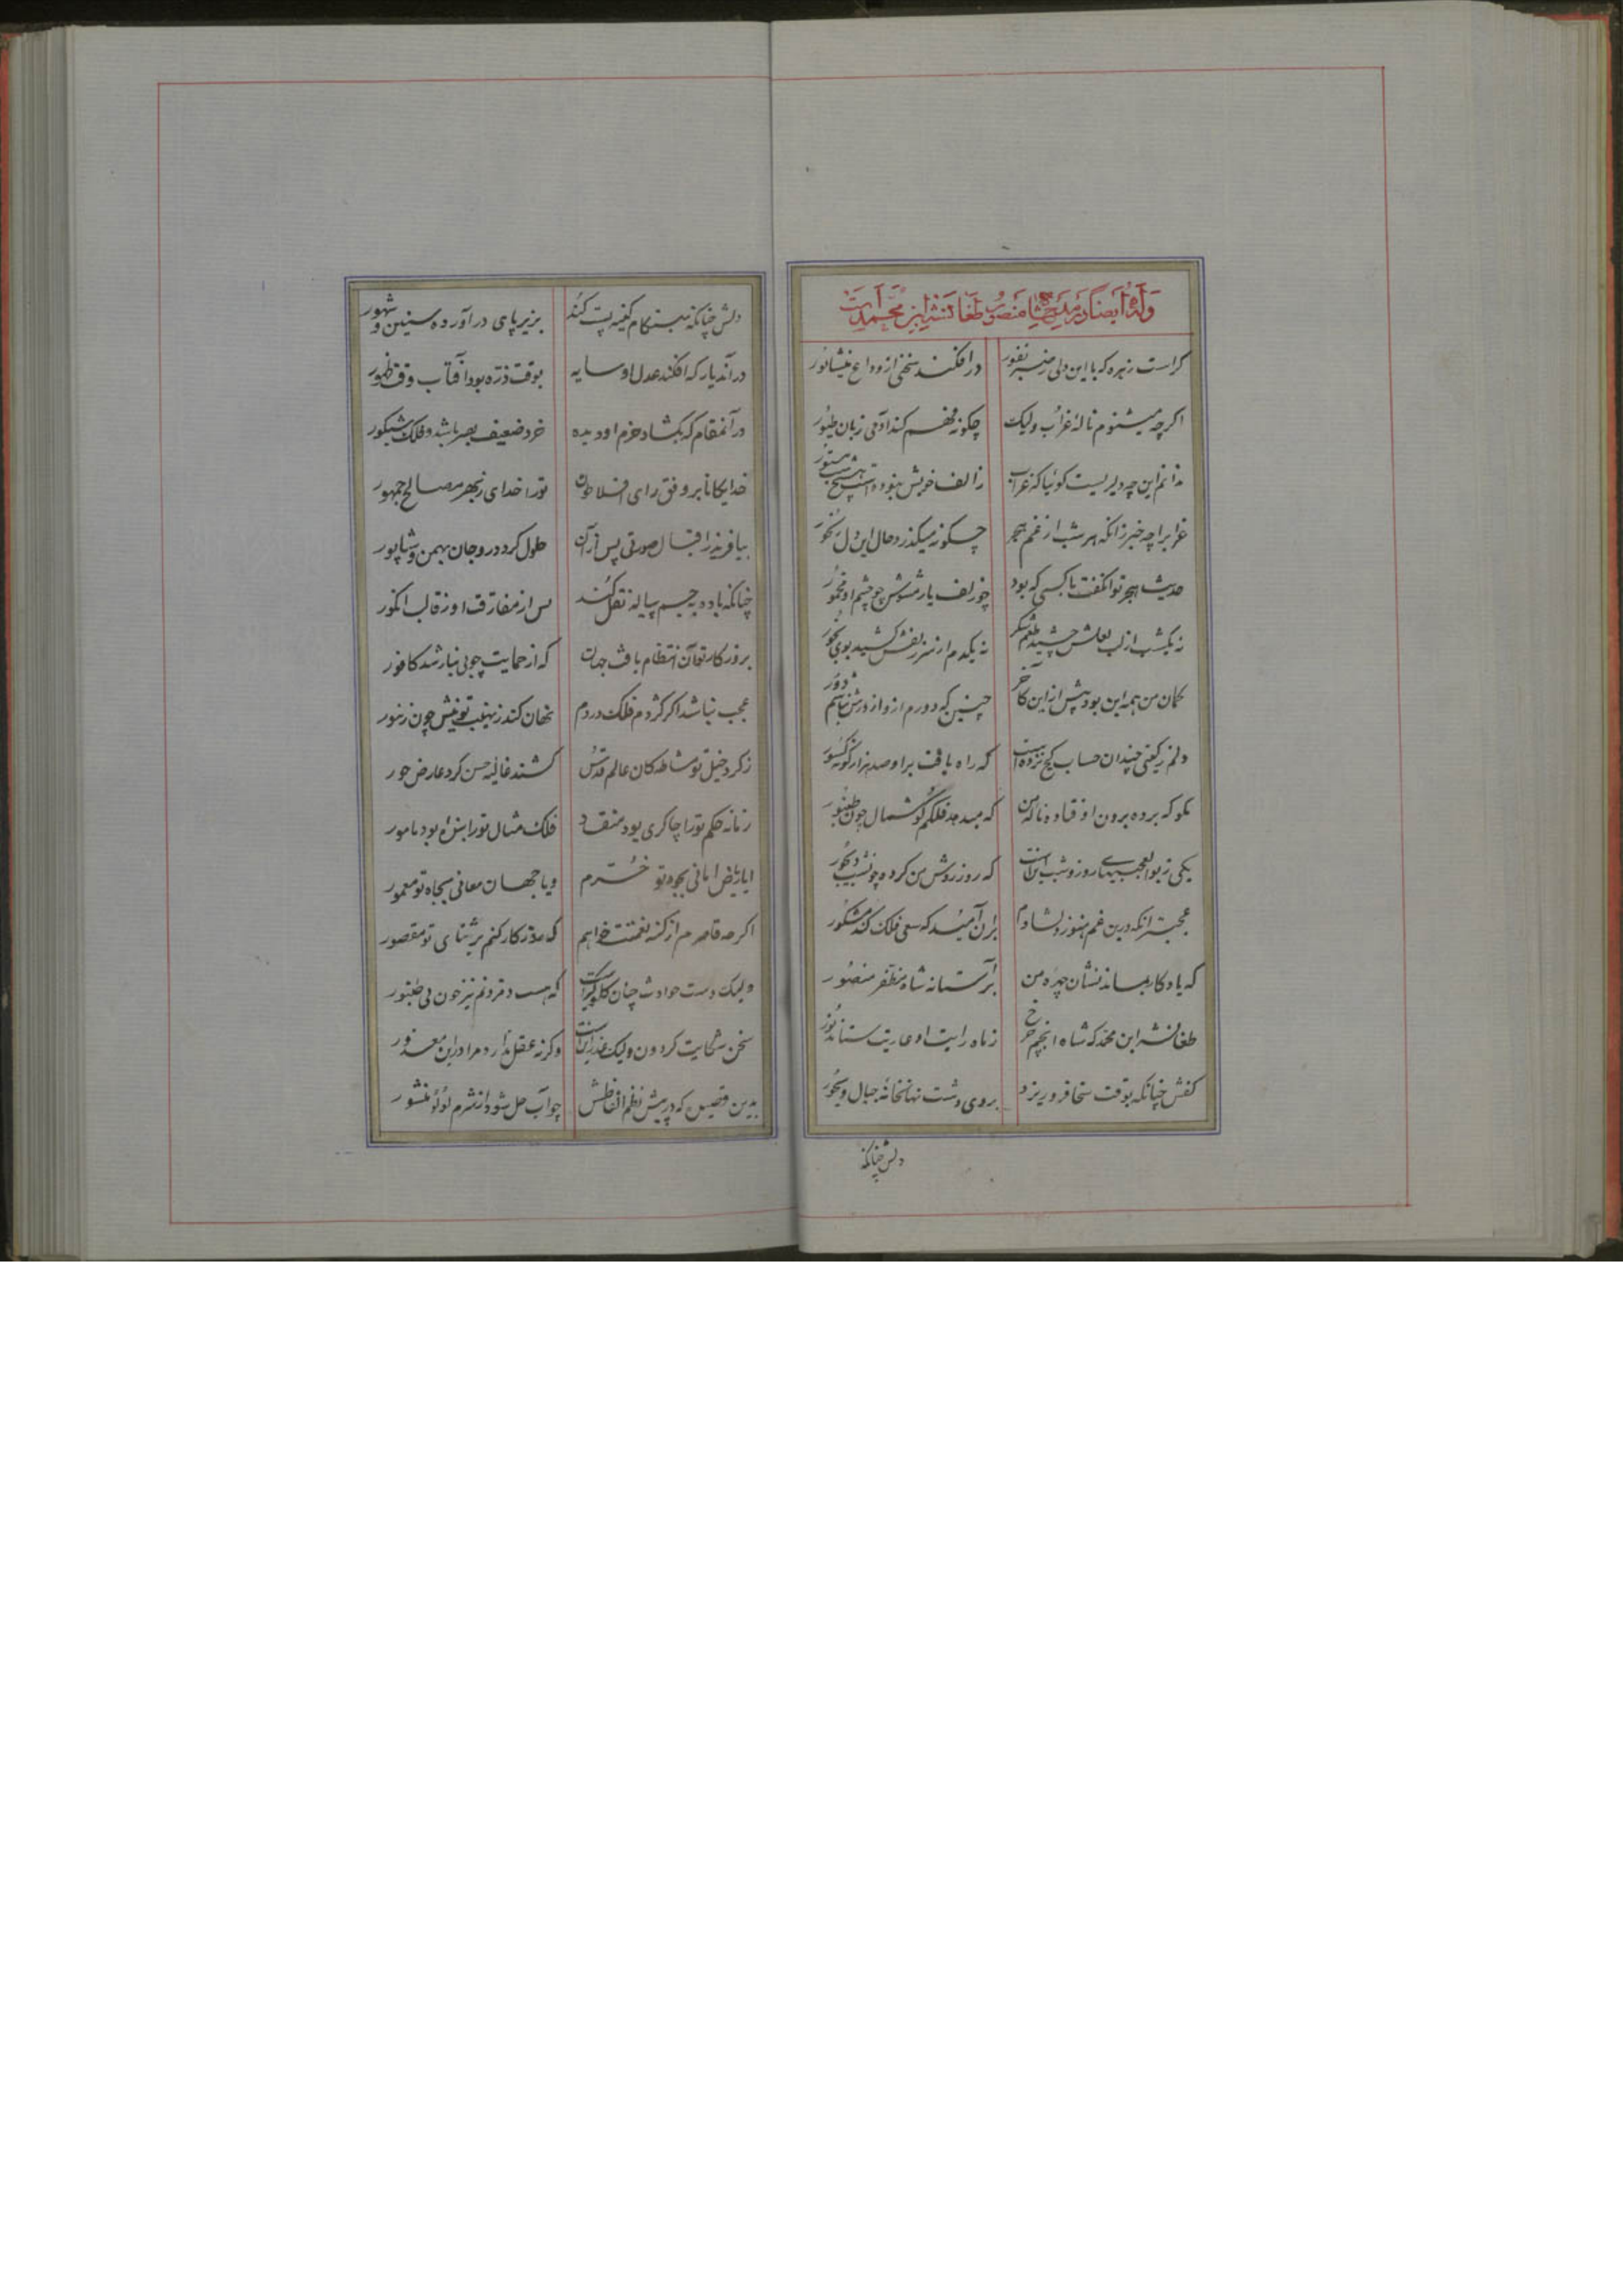 وله ایضا در مدیح شاه منصور طغانشه ابن محمد است
کراست زهره که با این دل ز صبر نفور در افکند سخنی از وداع نیشابور
اگرچه میشنوم ناله غراب ولیک چگونه فهم کند آدمی زبان طیور
ندانم این چه دلیریست گوئیا که غراب ز الف خویش نبوده است هیچ مستور
غرابرا چه خبر زانکه هر شب از غم هجر چگونه میگذرد حال این دل رنجور
حدیث هجر توان گفت با کسی که بود چو زلف یار مشوش چو چشم او مخمور
نه یکشب از لب لعلش چشید طعم شکر نه یکدم از سر زلفش کشید بوی بخور
گمان من همه این بود پیش از این کآخر چنین که دورم ازو از درش نباشم دور
دلم ز گیتی چندان حساب کج نزده است که راه یافت بر او صد هزار گونه کسور
نگو که برده برون اوفتاده ناله من که میدهد فلکم گوشمال چون طنبور
یکی ز بوالعجبیهای روز و شب این است که روز روشن من کرده چون شب دیجور
عجبتر انکه درین غم هنوز دلشادم بران امید که سعی فلک کند مشکور
که یادگار بماند نشان چهره من بر آستانه شاه مظفر منصور
طغانشه ابن محمد که شاه انجم چرخ ز ماه رایت او عاریت ستاند نور
کفش چنانکه بوقت سخا فرو ریزد بروی دشت نهانخانه جبال و بحور
دلش چنانکه
دلش چنانکه بهنگام کینه پست کند بزیر پای در آورده سنین و شهور
در آندیار که افکند عدل او سایه بوقت ذره بود آفتاب وقت ظهور
در آنمقام که بگشاد حزم او دیده خرد ضعیف بصر باشد و فلک شبکور
خدایگانا بر وفق رای افلاطون تورا خدای ز بهر مصالح جمهور
بیافرید ز اقبال صورتی پس از آن حلول کرد درو جان بهمن و شاپور
چنانکه باده بجسم پیاله نقل کند پس از مفارقت او ز قالب انگور
بروزگار تو آن انتظام یافت جهان که از حمایت چوبی نیاز شد کافور
عجب نباشد اگر کژدم فلک در دم نهان کند ز نهیب تو نیش چون زنبور
ز گرد خیل تو مشاطگان عالم قدس کشند غالیه حسن گرد عارض حور
زمانه حکم تورا چاکری بود منقاد فلک مثال تورا بنده بود مامور
ایا ریاض امانی بجود تو خرم ویا جهان معانی بجاه تو معمور
اگرچه قاصرم از کنه نعمتت خواهم که مدار کار کنم بر ثنای تو مقصور
ولیک دست حوادث چنان گلوگیر است که هست دم زدنم نیز چون نی طنبور
سخن شکایت گردون ولیک عذر این است وگرنه عقل ندارد مرا در این معذور
بدین قصیده که در پیش نظم الفاظش چو آب حل شود از شرم لؤلؤ منثور